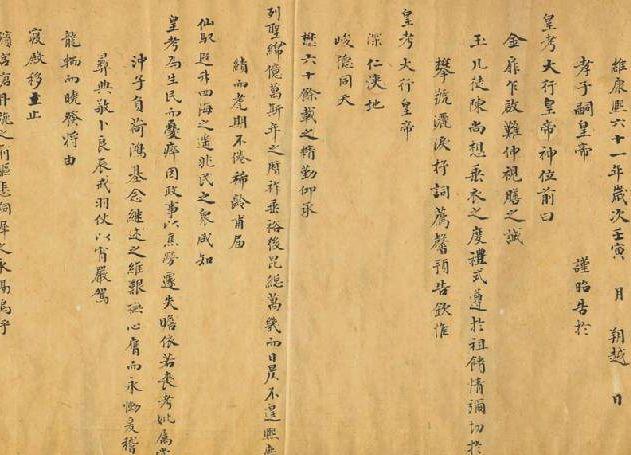 維康熙六十一年歲次壬寅 月 朔越 日
孝子嗣皇帝 謹昭告於
皇考大行皇帝神位前曰
金扉乍啟難伸視膳之誠
玉几徒陳尚想垂衣之度禮式遵於祖餞情彌切於
攀號灑淚抒詞薦馨預告欽惟
皇考大行皇帝
深仁浹地
峻德同天
懋六十餘載之精勤仰承
列聖綿億萬斯年之曆祚垂裕後昆總萬幾而日昃不遑熙庶
績而耄期不倦稀齡甫屆
仙馭遐升四海之遠兆民之衆咸知
皇考為生民而憂瘁因政事以焦勞遽失瞻依若喪考妣
沖子負荷鴻基念繼述之維艱撫心膺而永慟爰稽
彝典敬卜良辰戒羽仗以宵嚴駕
龍輴而曉發將由
寢殿移至止
之前驅